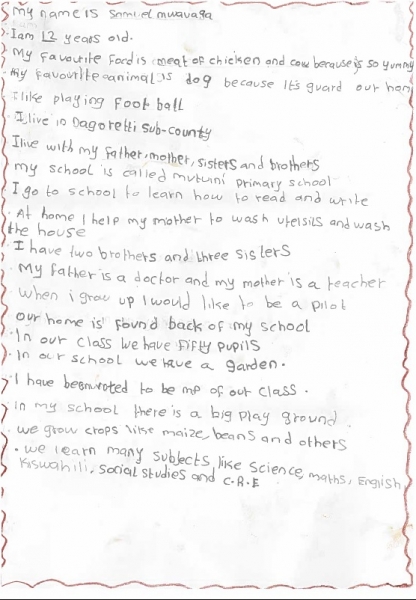 My name is Samuel mwavaga
I am 12 years old.
My favourite food is meat of chicken and cow because is so yummy
My favourite animal is dog because It's guard our hom
I like playing Foot ball
I live in Dagoretti sub-county
I live with my father, mother, sisters and brothers
my school is called mutuini primary school
I go to school to learn how to read and write
At home I help my mother to wash utelsils and wash
the house
I have two brothers and three sisters
My father is a doctor and my mother is a teacher
When i grow up I would like to be a pilot
our home is found back of my school
In our class we have FiFty Pupils
In our school we have a garden.
I have been voted to be mp of our class.
in my school there is a big play ground.
we grow crops like maize, beans and others
we learn many subjects like science, maths, English,
Kiswahili, social studies and C.R.E